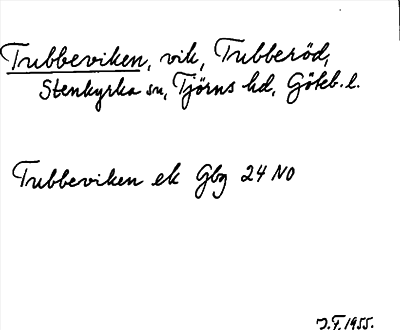 Tubbeviken, vik, Tubberöd,
Stenkyrka sn, Tjörns hd, Götb. l.
Tubbeviken ek Gbg 24 NO
J.F. 1955.